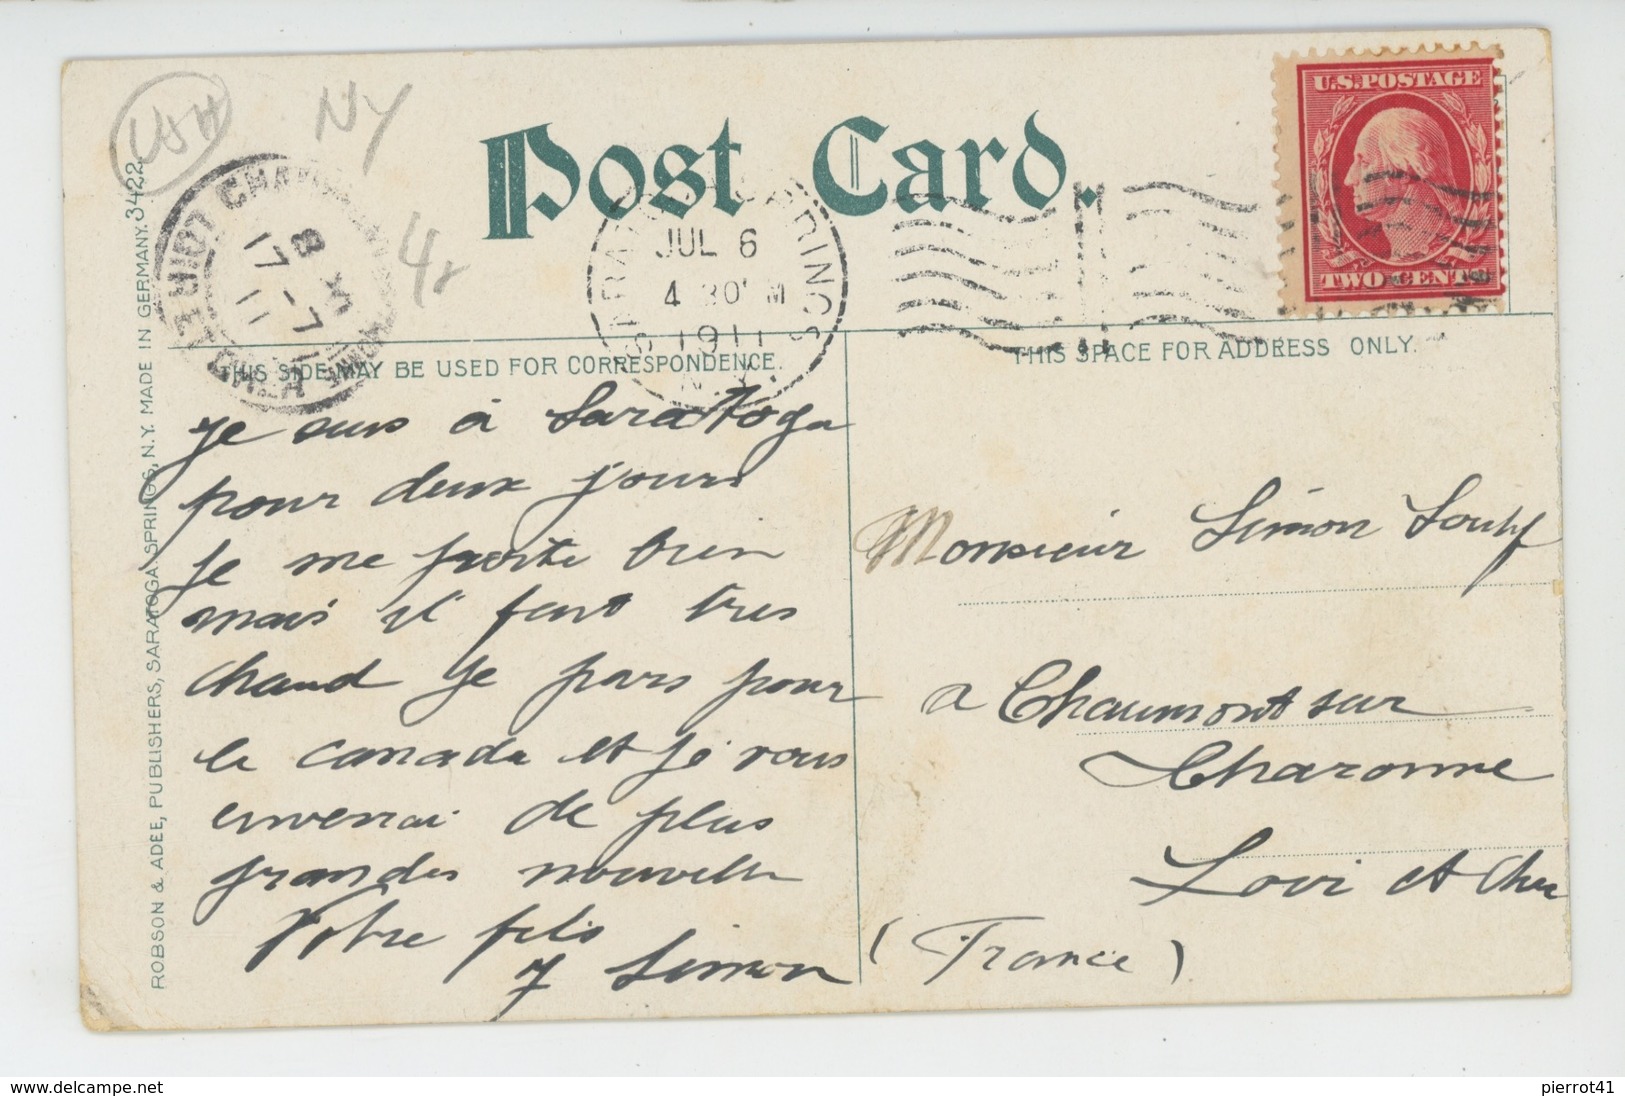 USA
NY
4x
Post Card.
U.S. POSTAGE
TWO CENTS
SARATOGA SPRINGS
JUL 6
4 30 M
1911
N.Y.
CHAUMONT
LOIR ET CHER
17 -7
11
THIS SIDE MAY BE USED FOR CORRESPONDENCE.
THIS SPACE FOR ADDRESS ONLY.
ROBSON & ADEE, PUBLISHERS, SARATOGA SPRINGS, N.Y. MADE IN GERMANY. 3422.
Je suis à Saratoga
pour deux jours
je me porte bien
mais il fait tres
chaud je pars pour
le canada et je vous
enverrai de plus
grandes nouvelle
Votre fils
Simon
Monsieur Simon
a Chaumont sur
Tharonne
Loir et Cher
(France)
pierrot41
www.delcampe.net